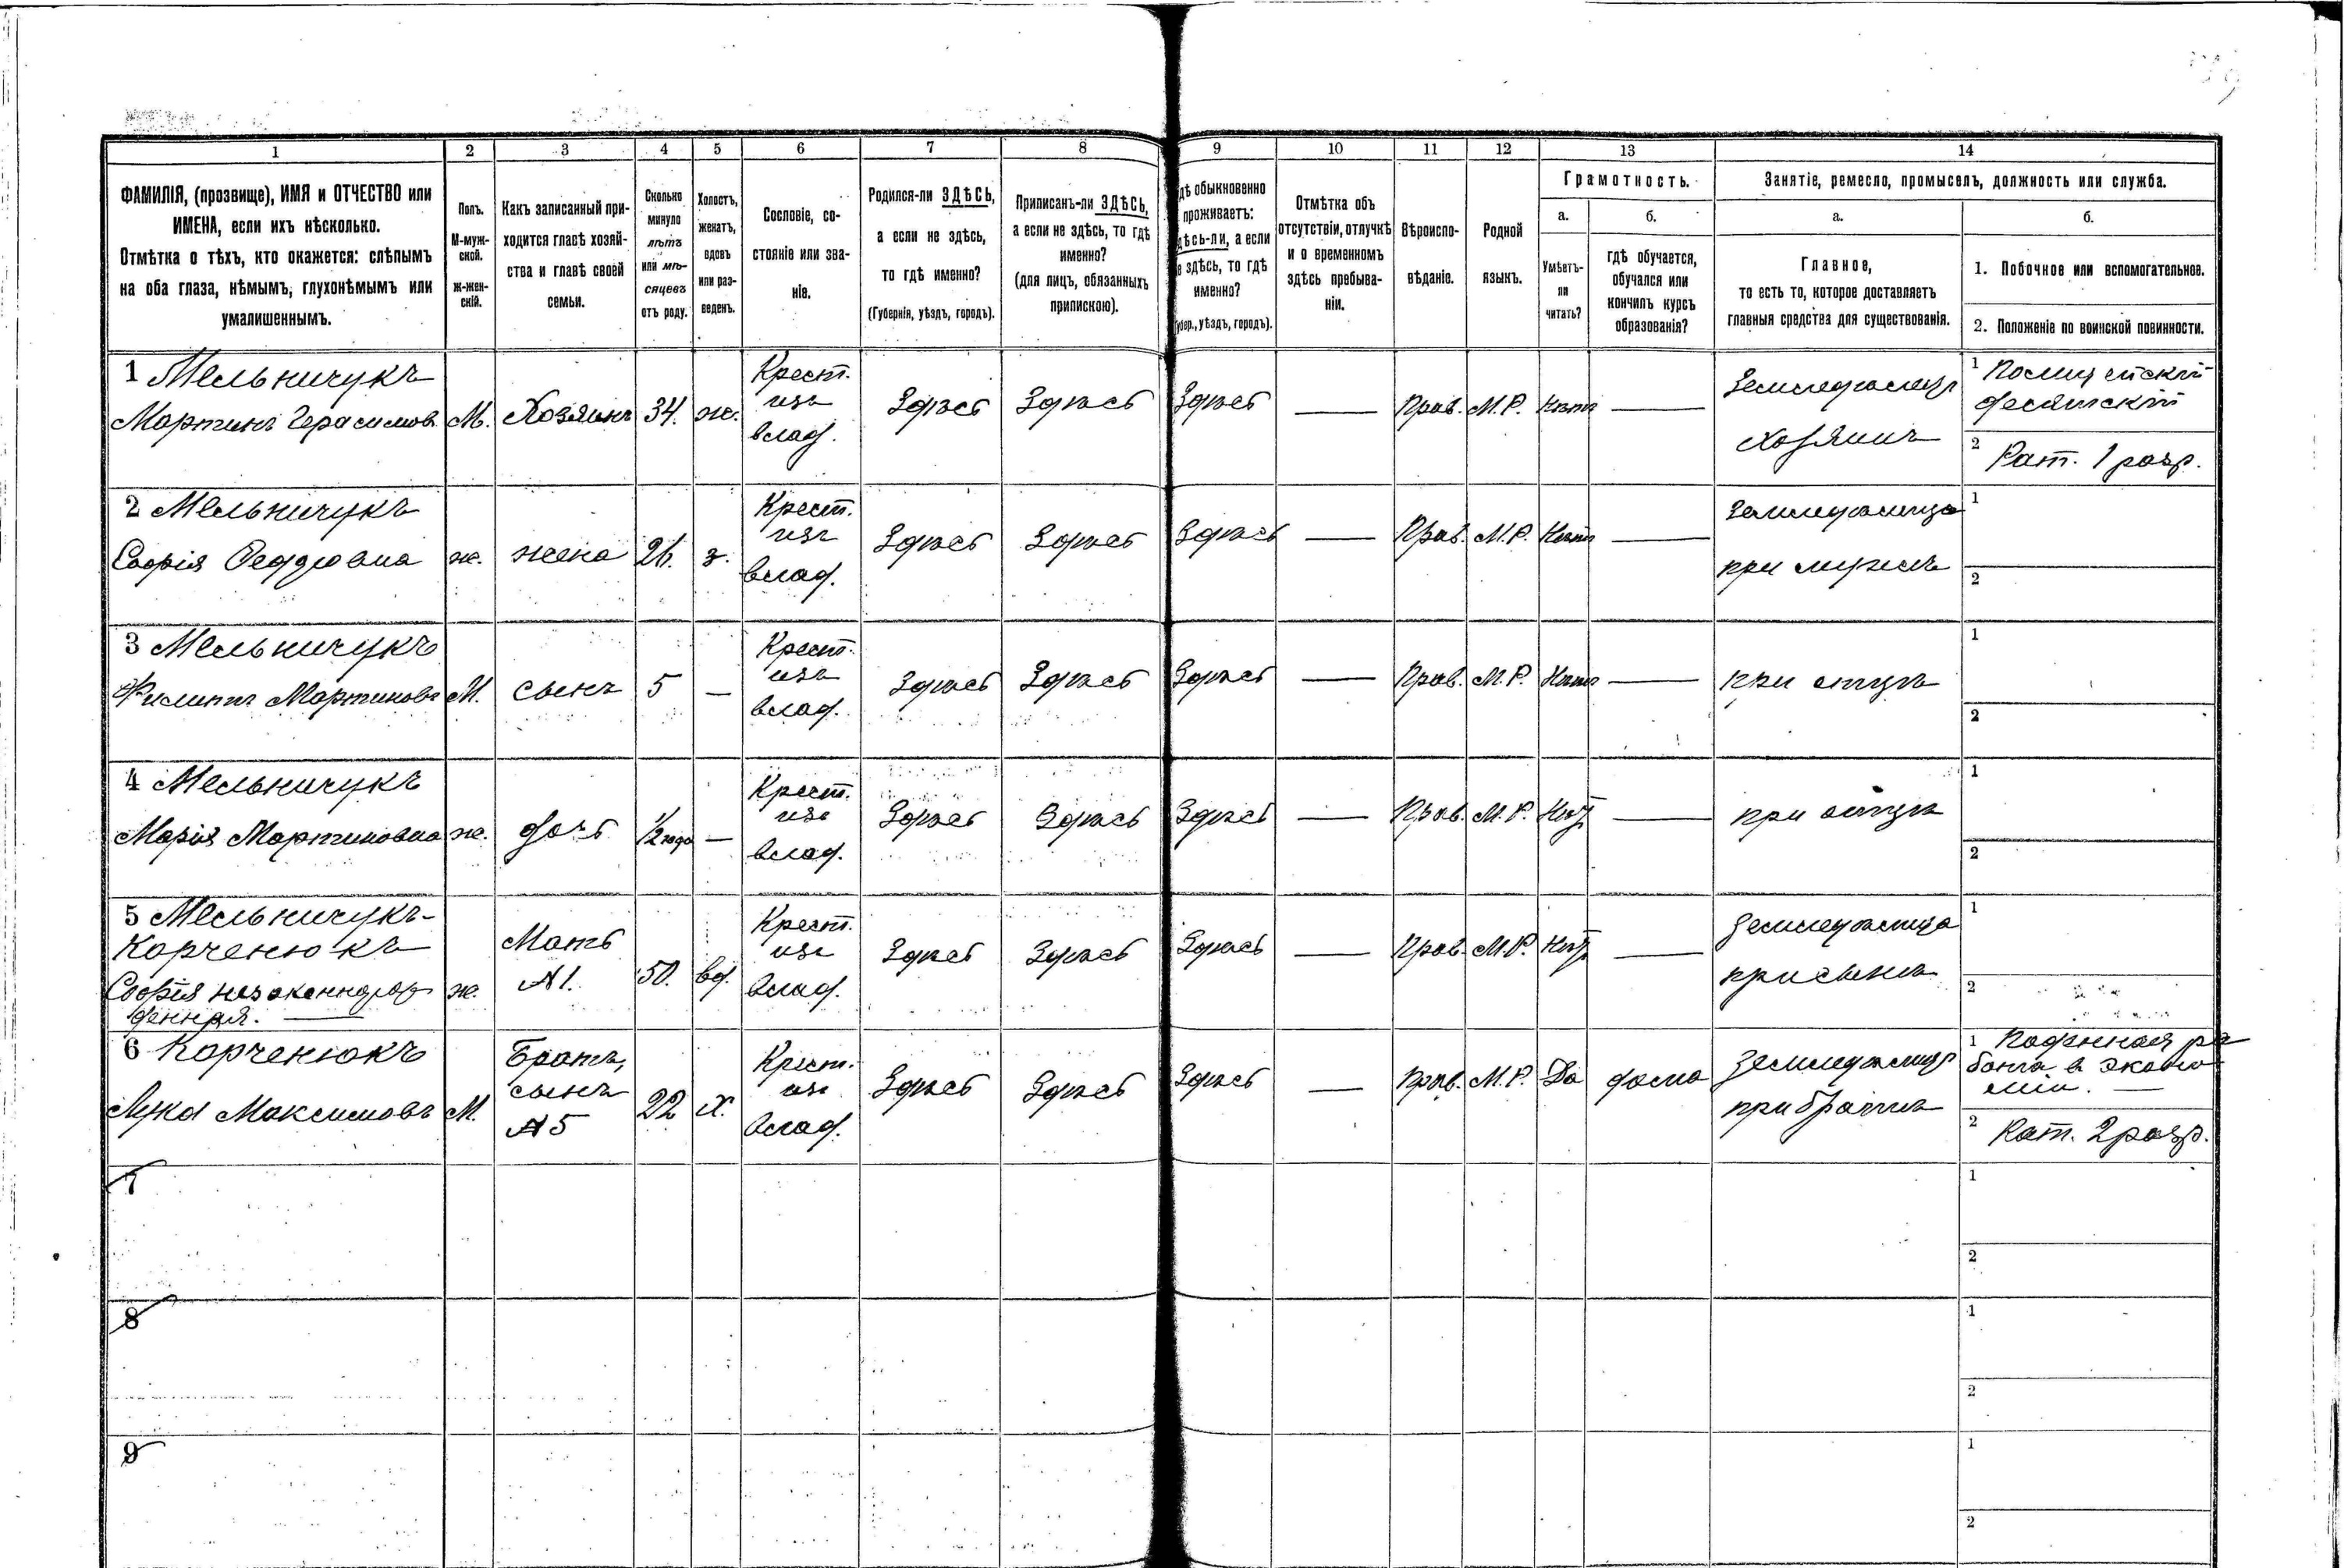 1 2 3 4 5 6 7 8 9 10 11 12 13 14
ФАМИЛІЯ, (прозвище), ИМЯ и ОТЧЕСТВО или
ИМЕНА, если ихъ нѣсколько.
Отмѣтка о тѣхъ, кто окажется: слѣпымъ
на оба глаза, нѣмымъ, глухонѣмымъ или
умалишеннымъ.
Полъ.
М-муж-
ской.
ж-жен-
скій.
Какъ записанный при-
ходится главѣ хозяй-
ства и главѣ своей
семьи.
Сколько
минуло
лѣтъ
или мѣ-
сяцевъ
отъ роду.
Холостъ,
женатъ,
вдовъ
или раз-
веденъ.
Сословіе, со-
стояніе или зва-
ніе.
Родился-ли ЗДѢСЬ,
а если не здѣсь,
то гдѣ именно?
(Губернія, уѣздъ, городъ).
Приписанъ-ли ЗДѢСЬ,
а если не здѣсь, то гдѣ
именно?
(для лицъ, обязанныхъ
припискою).
дѣ обыкновенно
проживаетъ:
дѣсь-ли, а если
е здѣсь, то гдѣ
именно?
Губер., уѣздъ, городъ).
Отмѣтка объ
отсутствіи, отлучкѣ
и о временномъ
здѣсь пребыва-
ніи.
Вѣроиспо-
вѣданіе.
Родной
языкъ.
Грамотность.
а.
Умѣетъ-
ли
читать?
б.
гдѣ обучается,
обучался или
кончилъ курсъ
образованія?
Занятіе, ремесло, промыселъ, должность или служба.
а.
Главное,
то есть то, которое доставляетъ
главныя средства для существованія.
б.
1. Побочное или вспомогательное.
2. Положеніе по воинской повинности.
1 Мельничукъ
Мартинъ Герасимовъ
М.
Хозяинъ
34.
ж.
Крест.
изъ
влад.
Здѣсь
Здѣсь
Здѣсь
—
Прав.
М.Р.
Нѣтъ
—
Земледѣлецъ
хозяинъ
1 Полицейскій
десятскій
2 Рат. 1 разр.
2 Мельничукъ
Софія Феддовна
ж.
жена
26.
з.
Крест.
изъ
влад.
Здѣсь
Здѣсь
Здѣсь
—
Прав.
М.Р.
Нѣтъ
—
Земледѣлица
при мужѣ
1
2
3 Мельничукъ
Филиппъ Мартиновъ
М.
сынъ
5
—
Крест.
изъ
влад.
Здѣсь
Здѣсь
Здѣсь
—
Прав.
М.Р.
Нѣтъ
—
при отцѣ
1
2
4 Мельничукъ
Марія Мартиновна
ж.
дочь
1/2 года
—
Крест.
изъ
влад.
Здѣсь
Здѣсь
Здѣсь
—
Прав.
М.Р.
Нѣт
—
при отцѣ
1
2
5 Мельничукъ-
Корченюкъ
Софія незаконнорож
денная. —
ж.
Мать
№1.
50.
вд.
Крест.
изъ
влад.
Здѣсь
Здѣсь
Здѣсь
—
Прав.
М.Р.
Нѣт
—
Земледѣлица
при сынѣ
1
2
6 Корченюкъ
Лука Максимовъ
М.
Братъ,
сынъ
№5
22
х.
Крест.
изъ
влад.
Здѣсь
Здѣсь
Здѣсь
—
Прав.
М.Р.
Да
дома
Земледѣлецъ
при братѣ
1 Поденная ра
бота в эконо
міи. —
2 Рат. 2 разр.
7
1
2
8
1
2
9
1
2